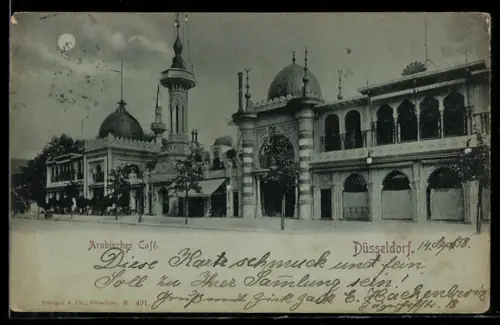 Arabisches Café.
Düsseldorf. 14 Sept 98.
Diese Karte schmuck und fein
Soll zu Ihrer Samlung sein.
Gruß und
Stengel & Co., Dresden. B. 491.